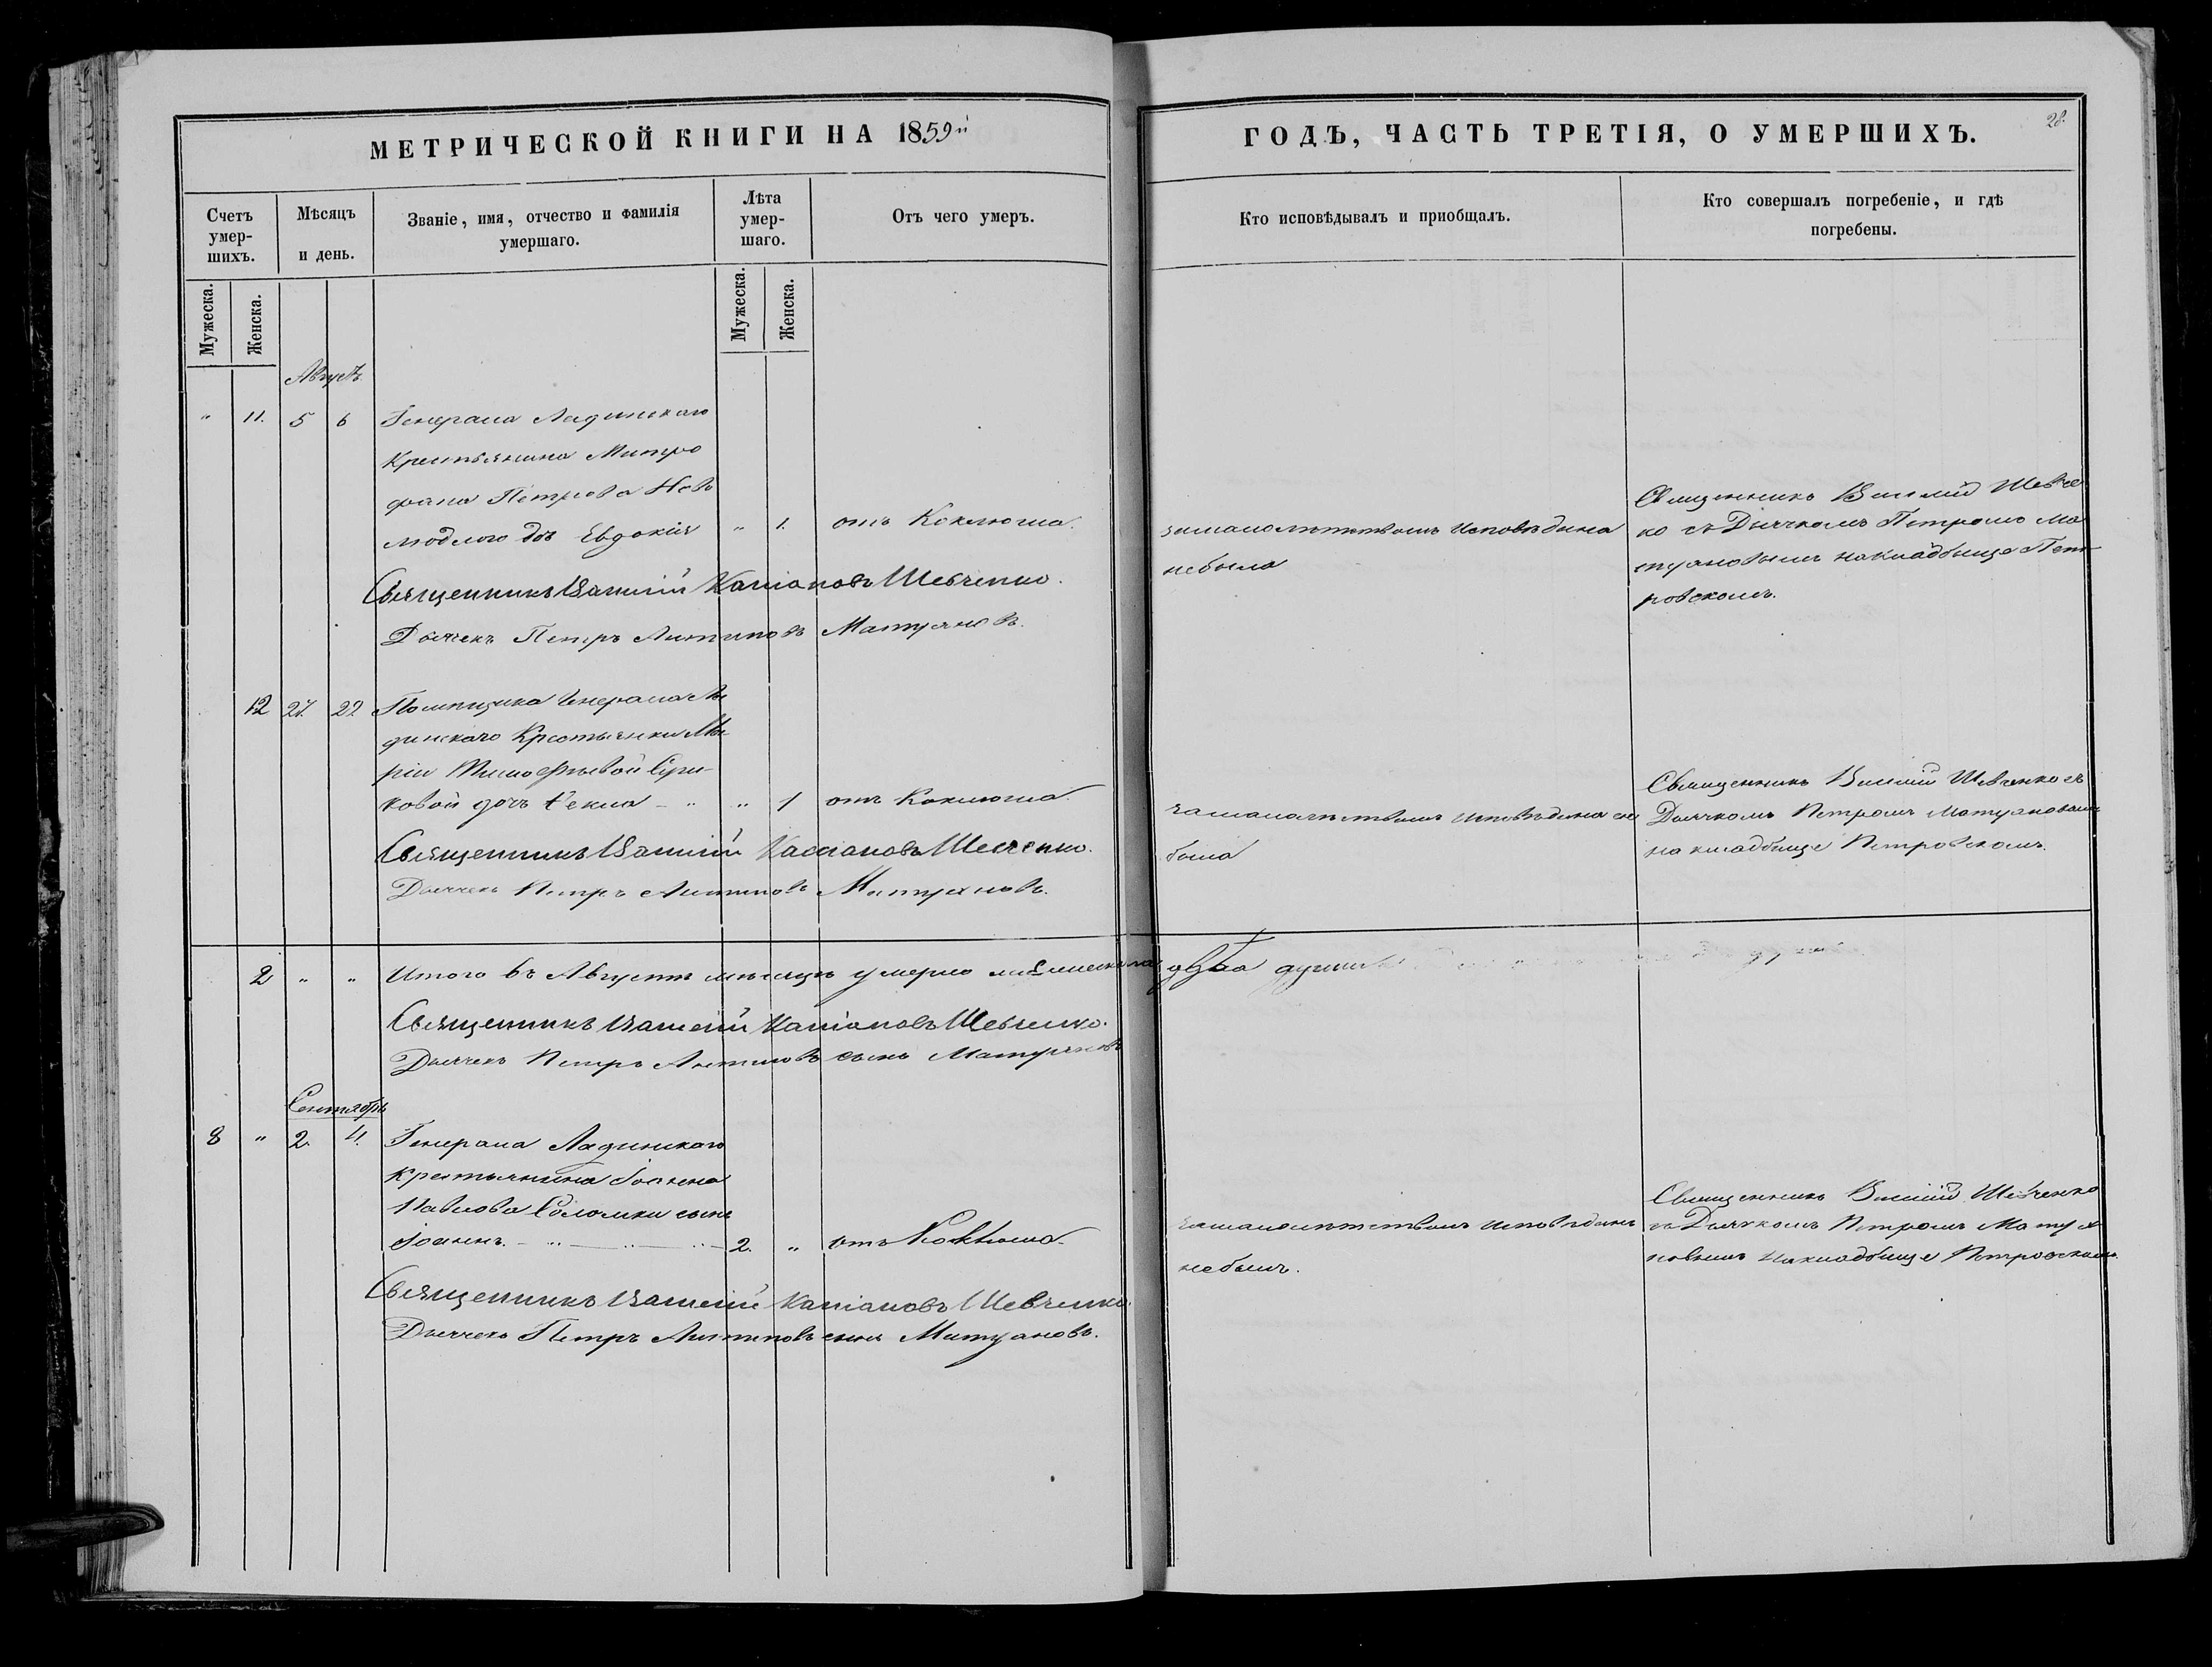 МЕТРИЧЕСКОЙ КНИГИ НА 1859й
ГОДЪ, ЧАСТЬ ТРЕТІЯ, О УМЕРШИХЪ.
28.
Счетъ умер-шихъ.
Мѣсяцъ и день.
Званіе, имя, отчество и фамилія умершаго.
Лѣта умер-шаго.
Отъ чего умеръ.
Кто исповѣдывалъ и пріобщалъ.
Кто совершалъ погребеніе, и гдѣ погребены.
Мужеска.
Женска.
Мужеска.
Женска.
Августъ
" 11. 5 6 Генерала Ладинскаго
Крестьянина Митро
фана Петрова
дочь Евдокія " 1. отъ Коклюша.
замалолѣтствомъ исповѣдана
небыла
Священникъ Василій Шевче
ко съ Дьячкомъ Петромъ Ма
туановымъ накладбище Пет
ровскомъ.
Священникъ Василій Кассіановъ Шевченко.
Дьячекъ Петръ Антиповъ Матуановъ.
12 27. 29 Помѣщика Генерала Ла
динскаго Крестьянки Ма
ріи
ковой дочь Ѳекла " 1 отъ Коклюша.
замалолѣтствомъ исповѣдана не
была
Священникъ Василій Шевченко съ
Дьячкомъ Петромъ Матуановымъ
на кладбище Петровскомъ.
Священникъ Василій Кассіановъ Шевченко.
Дьячекъ Петръ Антиповъ Матуановъ.
2 " " Итого въ Августѣ мѣсяцѣ умерло женска пола двѣ души
Священникъ Василій Кассіановъ Шевченко.
Дьячекъ Петръ Антиповъ сынъ Матуановъ
Сентябрь
8 " 2. 4. Генерала Ладинскаго
Крестьянина Іоанна
Павлова Соломки сынъ
Іоаннъ. 2. " отъ Коклюша.
замалолѣтствомъ исповѣданъ
небылъ.
Священникъ Василій Шевченко
съ Дьячкомъ Петромъ Матуа
новымъ накладбище Петровскомъ.
Священникъ Василій Кассіановъ Шевченко.
Дьячекъ Петръ Антиповъ сынъ Матуановъ.